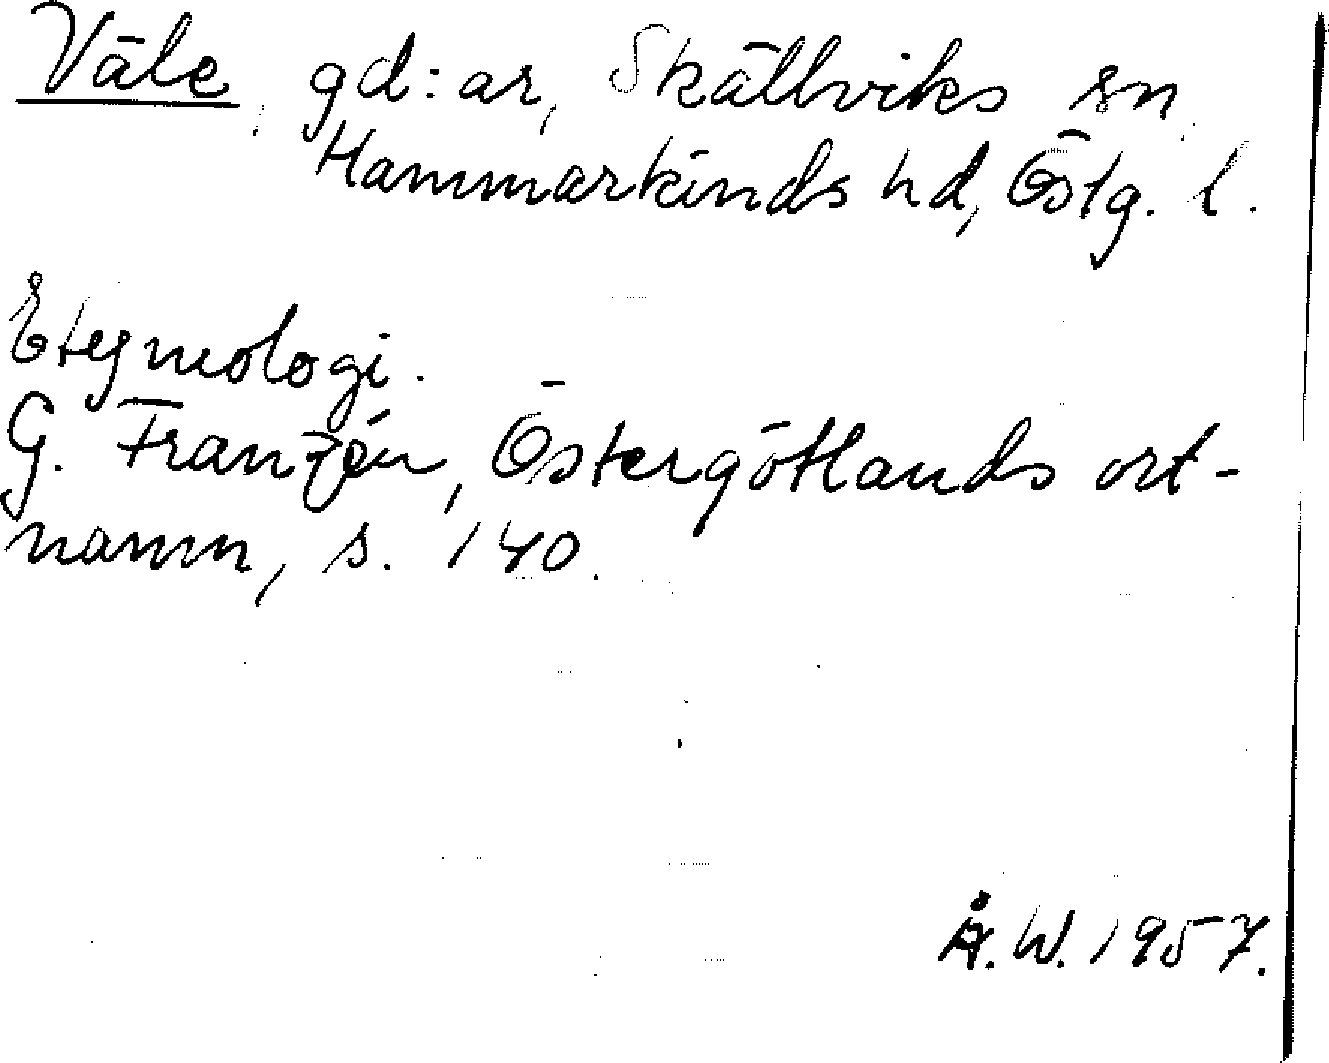 Väle, gd:ar, Skällviks sn.
Hammarkinds hd, Östg. l.
Etymologi.
G. Franzén, Östergötlands ort-
namn, s. 140.
Å.W. 1957.